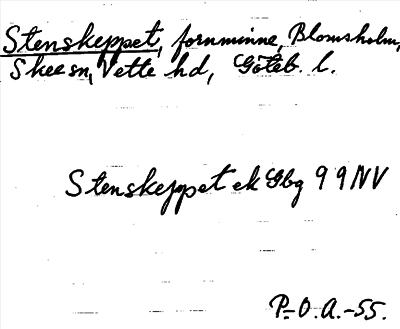 Stenskeppet, fornminne, Blomsholm,
Skee sn, Vette hd, Göteb. l.
Stenskeppet ek Gbg 99 NV
P.O.A.-55.